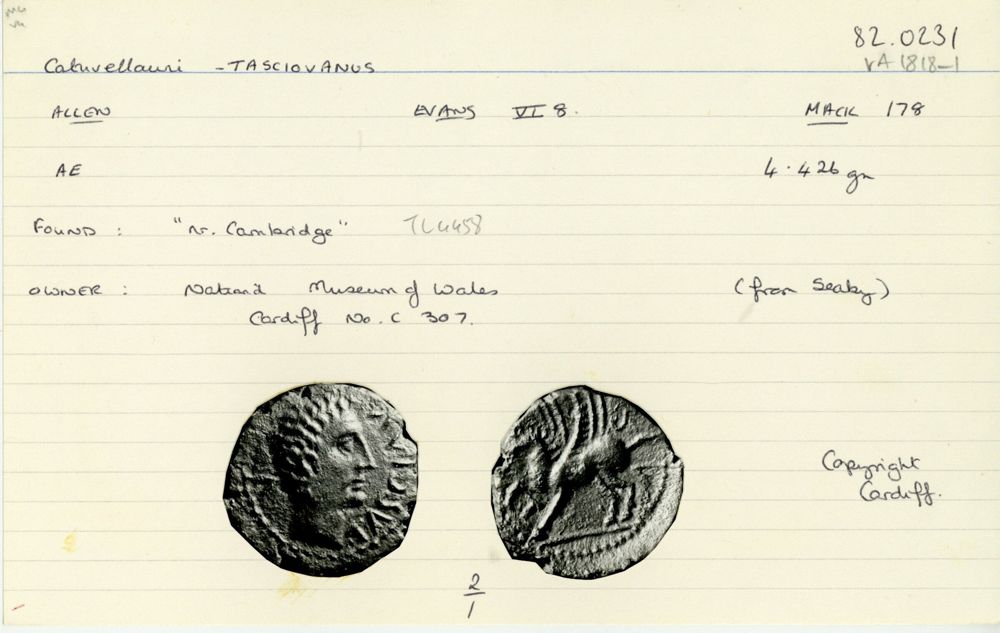 82.0231
Catuvellauni - TASCIOVANUS
VA 1818-1
ALLEN EVANS VI 8. MACK 178
AE 4.426 gm
FOUND : "nr. Cambridge" TL4458
OWNER : National Museum of Wales (from Seaby)
Cardiff No. C 307.
Copyright
Cardiff.
2
1